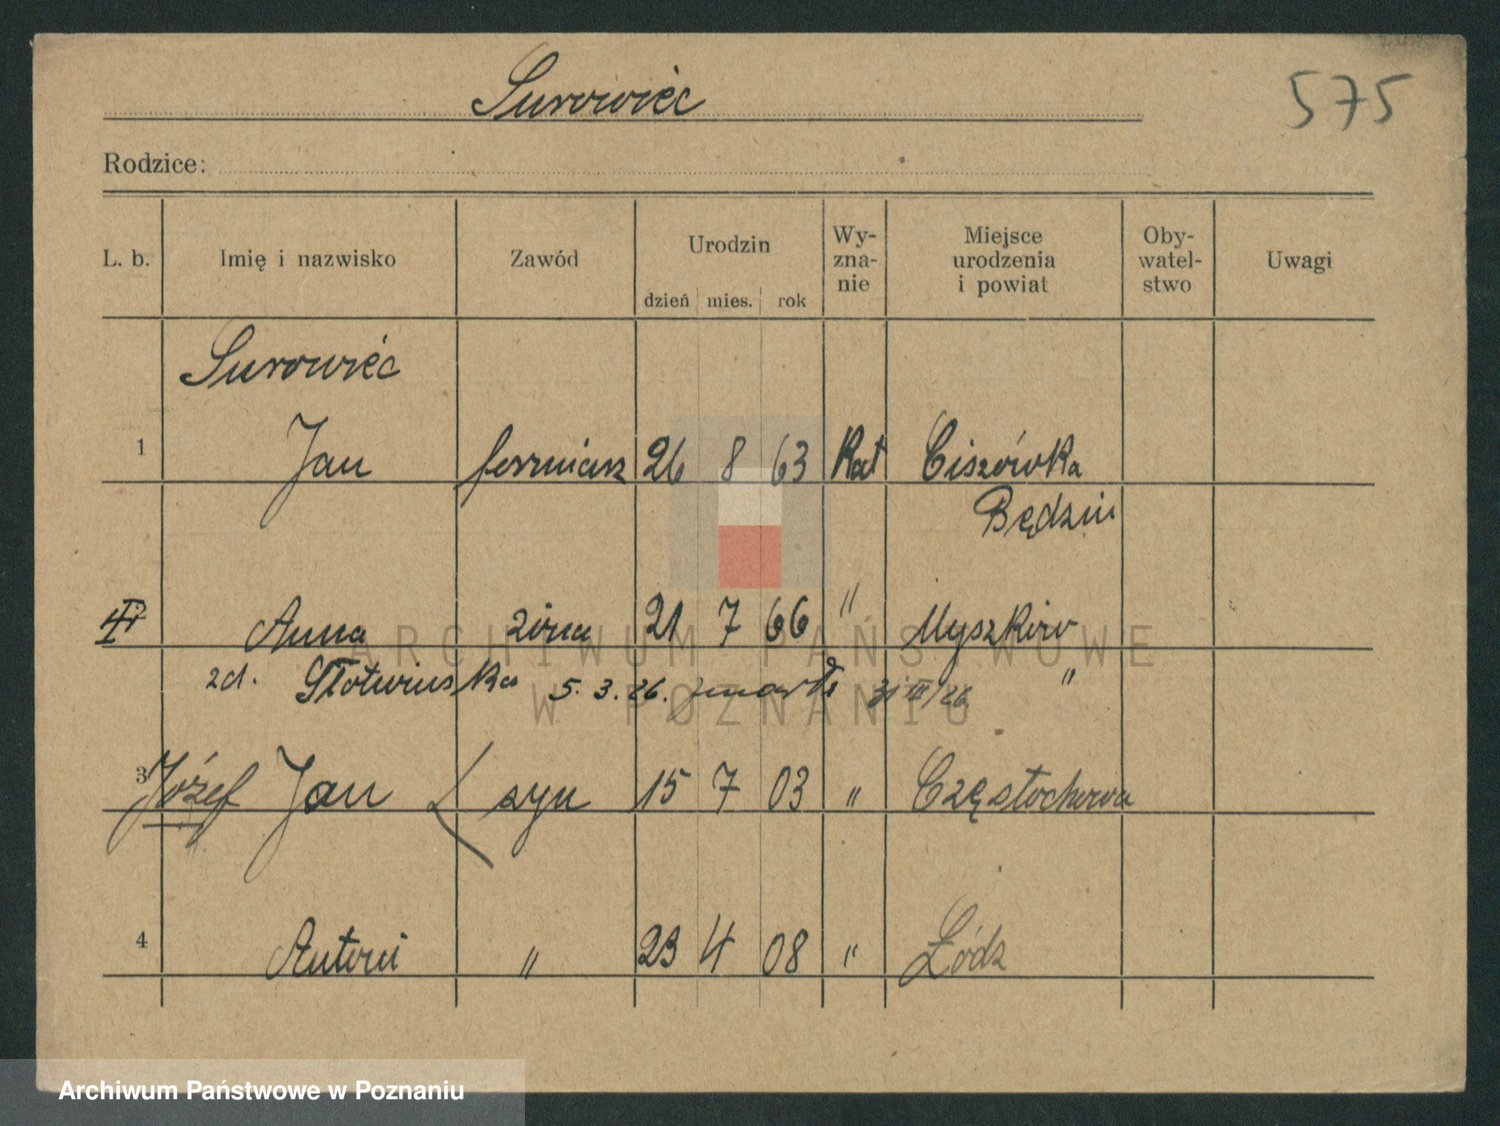 Surowiéc
575
Rodzice:
L. b. Imię i nazwisko Zawód Urodzin dzień mies. rok Wy-zna-nie Miejsce urodzenia i powiat Oby-watel-stwo Uwagi
Surowiéc
1 Jan 26 8 63 Kat Ciszówka
Będzin
Anna żona 21 7 66 " Myszków
zd. Słotwińska 5. 3. 26. zmarła 3/III/26 "
3 Józef Jan syn 15 7 03 " Częstochowa
4 Antoni " 23 4 08 " Łódz
ARCHIWUM PAŃSTWOWE
W POZNANIU
Archiwum Państwowe w Poznaniu